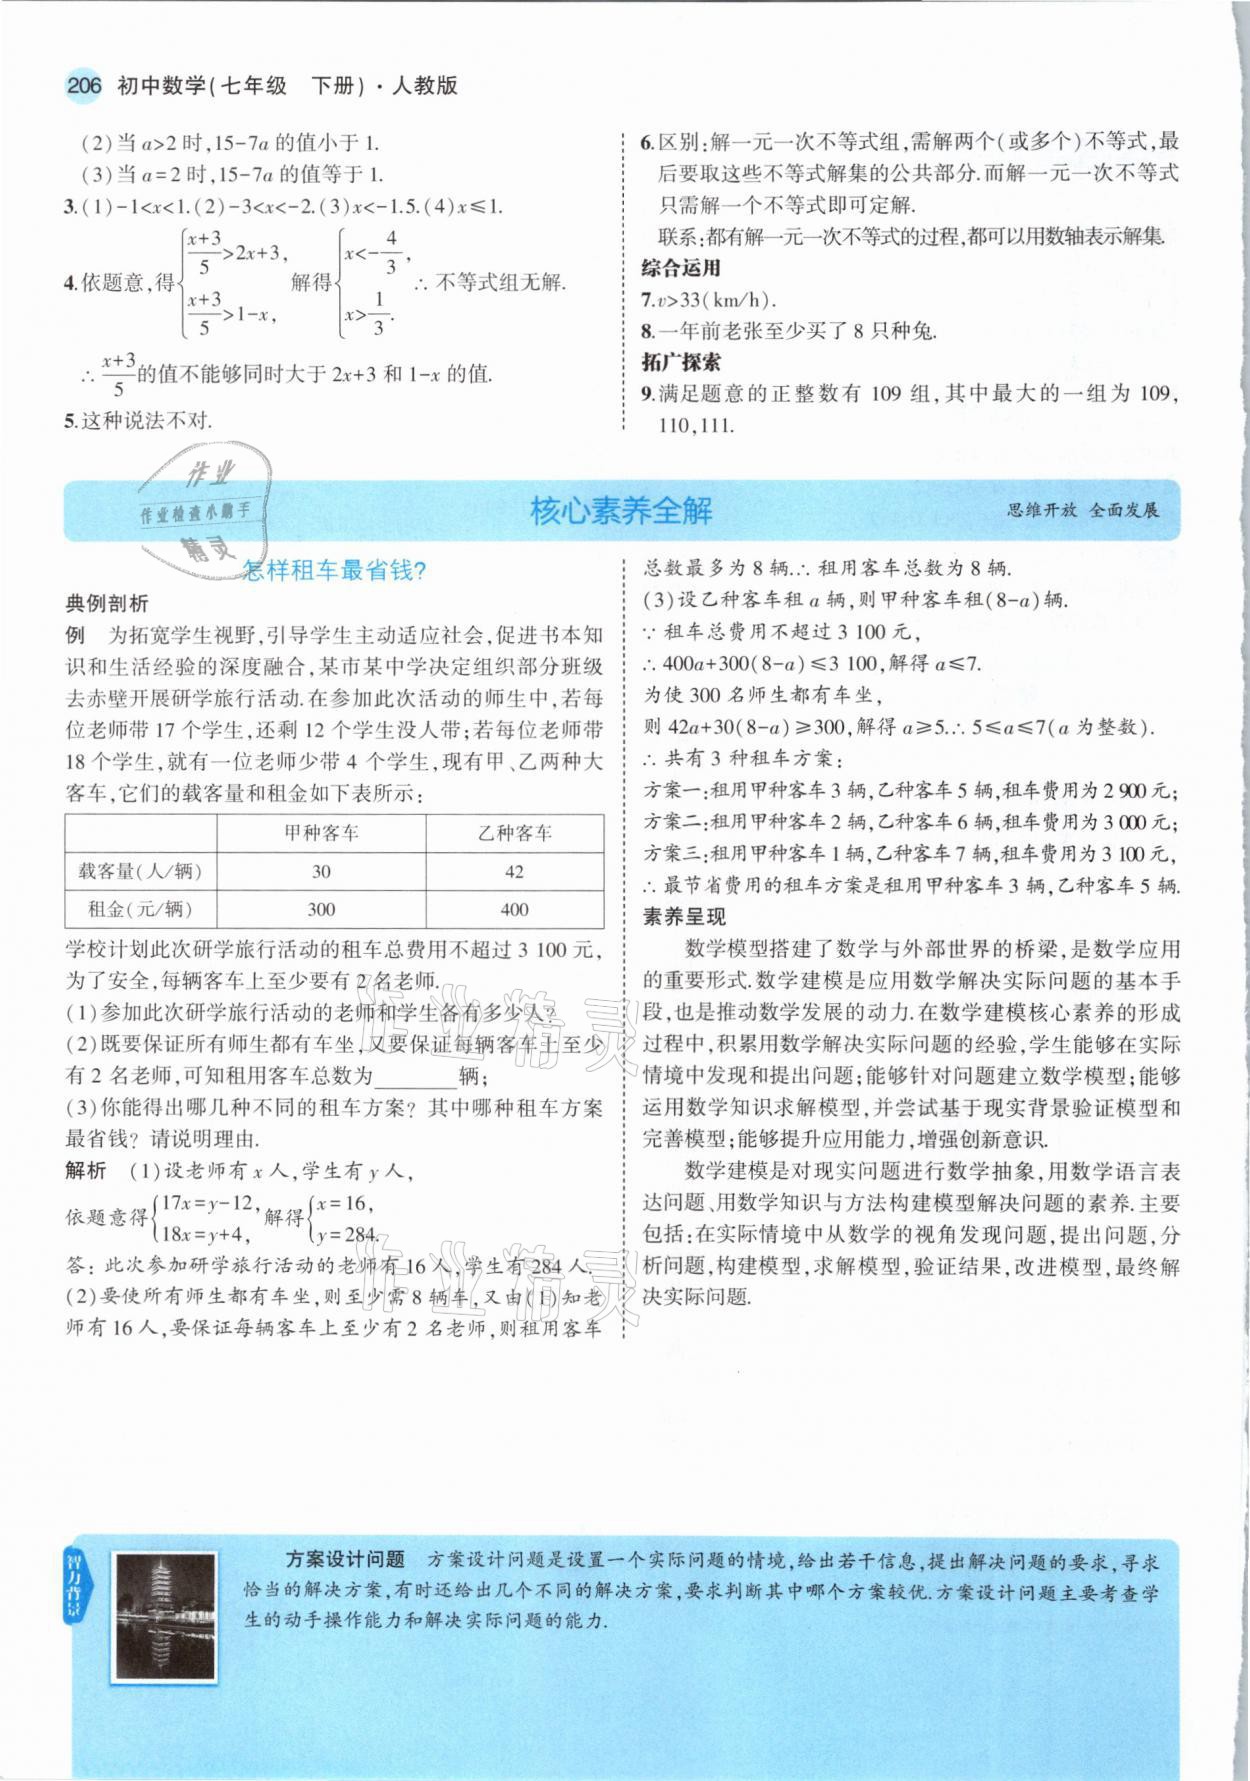 206 初中数学(七年级 下册)·人教版
(2)当a>2时,15-7a的值小于1.
(3)当a=2时,15-7a的值等于1.
3.(1)-1<x<1.(2)-3<x<-2.(3)x<-1.5.(4)x≤1.
4.依题意,得{(x+3)/5>2x+3, (x+3)/5>1-x, 解得{x<-4/3, x>1/3. ∴不等式组无解.
∴(x+3)/5的值不能够同时大于2x+3和1-x的值.
5.这种说法不对.
6.区别:解一元一次不等式组,需解两个(或多个)不等式,最
后要取这些不等式解集的公共部分.而解一元一次不等式
只需解一个不等式即可定解.
联系:都有解一元一次不等式的过程,都可以用数轴表示解集.
综合运用
7.v>33(km/h).
8.一年前老张至少买了8只种兔.
拓广探索
9.满足题意的正整数有109组,其中最大的一组为109,
110,111.
作业
作业检查小助手
精灵
核心素养全解
思维开放 全面发展
怎样租车最省钱?
典例剖析
例 为拓宽学生视野,引导学生主动适应社会,促进书本知
识和生活经验的深度融合,某市某中学决定组织部分班级
去赤壁开展研学旅行活动.在参加此次活动的师生中,若每
位老师带17个学生,还剩12个学生没人带;若每位老师带
18个学生,就有一位老师少带4个学生,现有甲、乙两种大
客车,它们的载客量和租金如下表所示:
甲种客车 乙种客车
载客量(人/辆) 30 42
租金(元/辆) 300 400
学校计划此次研学旅行活动的租车总费用不超过3 100元,
为了安全,每辆客车上至少要有2名老师.
(1)参加此次研学旅行活动的老师和学生各有多少人?
(2)既要保证所有师生都有车坐,又要保证每辆客车上至少
有2名老师,可知租用客车总数为________辆;
(3)你能得出哪几种不同的租车方案?其中哪种租车方案
最省钱?请说明理由.
解析 (1)设老师有x人,学生有y人,
依题意得{17x=y-12, 18x=y+4, 解得{x=16, y=284.
答:此次参加研学旅行活动的老师有16人,学生有284人.
(2)要使所有师生都有车坐,则至少需8辆车,又由(1)知老
师有16人,要保证每辆客车上至少有2名老师,则租用客车
总数最多为8辆.∴租用客车总数为8辆.
(3)设乙种客车租a辆,则甲种客车租(8-a)辆.
∵租车总费用不超过3 100元,
∴400a+300(8-a)≤3 100,解得a≤7.
为使300名师生都有车坐,
则42a+30(8-a)≥300,解得a≥5.∴5≤a≤7(a为整数).
∴共有3种租车方案:
方案一:租用甲种客车3辆,乙种客车5辆,租车费用为2 900元;
方案二:租用甲种客车2辆,乙种客车6辆,租车费用为3 000元;
方案三:租用甲种客车1辆,乙种客车7辆,租车费用为3 100元,
∴最节省费用的租车方案是租用甲种客车3辆,乙种客车5辆.
素养呈现
数学模型搭建了数学与外部世界的桥梁,是数学应用
的重要形式.数学建模是应用数学解决实际问题的基本手
段,也是推动数学发展的动力.在数学建模核心素养的形成
过程中,积累用数学解决实际问题的经验,学生能够在实际
情境中发现和提出问题;能够针对问题建立数学模型;能够
运用数学知识求解模型,并尝试基于现实背景验证模型和
完善模型;能够提升应用能力,增强创新意识.
数学建模是对现实问题进行数学抽象,用数学语言表
达问题、用数学知识与方法构建模型解决问题的素养.主要
包括:在实际情境中从数学的视角发现问题,提出问题,分
析问题,构建模型,求解模型,验证结果,改进模型,最终解
决实际问题.
作业精灵
作业精灵
智力背景
方案设计问题 方案设计问题是设置一个实际问题的情境,给出若干信息,提出解决问题的要求,寻求
恰当的解决方案,有时还给出几个不同的解决方案,要求判断其中哪个方案较优.方案设计问题主要考查学
生的动手操作能力和解决实际问题的能力.